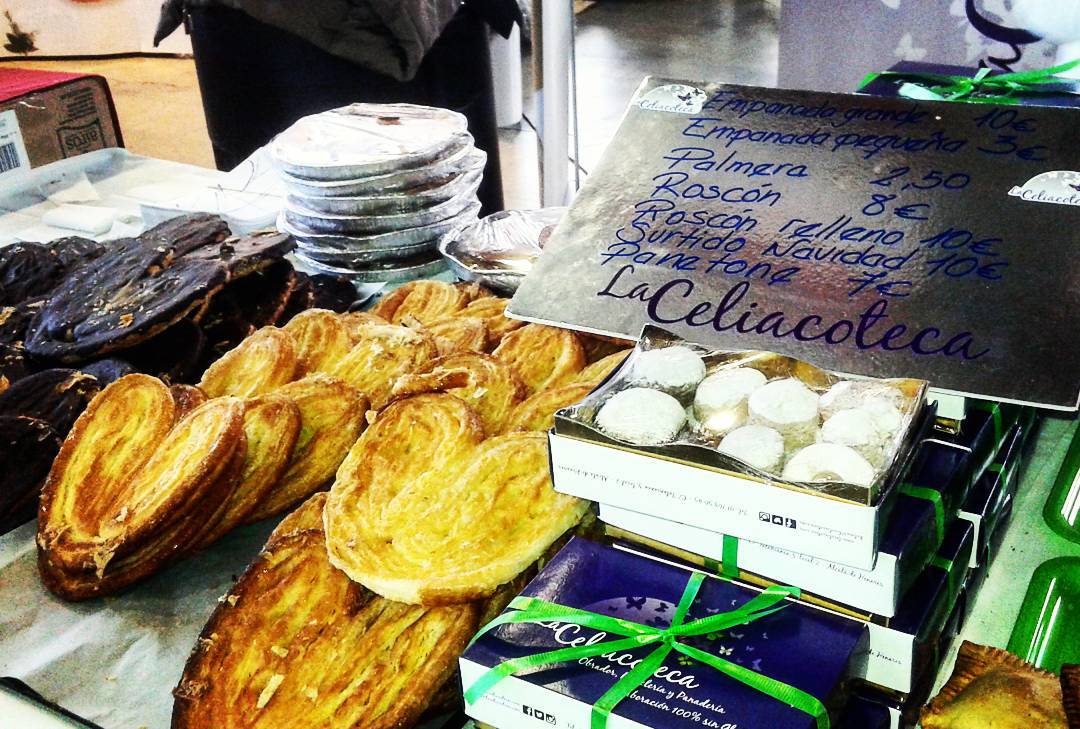 Celiacoteca
Empanada grande 10€
Empanada pequeña 3€
Palmera 2,50
Roscón 8€
Roscón relleno 10€
Surtido Navidad 10€
Panetone 7€
La Celiacoteca
La Celiacoteca
La Celiacoteca
Obrador, Pastelería y Panadería
100% sin
airos